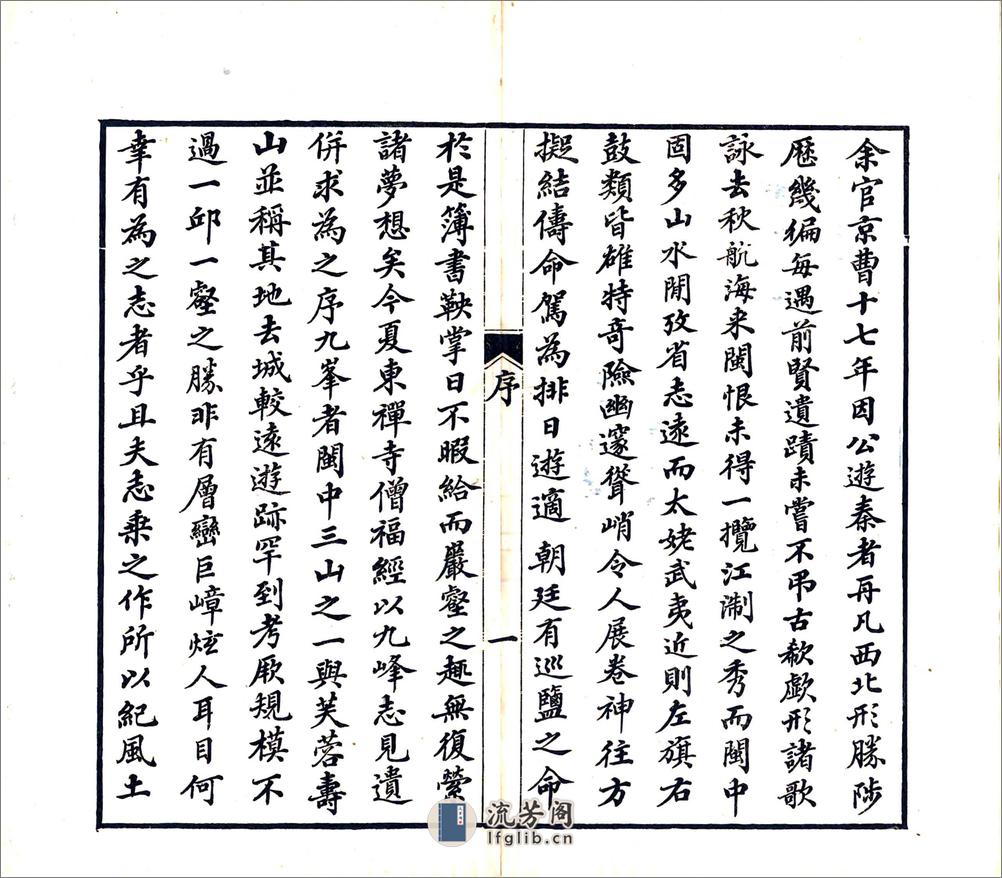 余官京曹十七年因公遊秦者再凡西北形勝陟
歷幾徧每遇前賢遺蹟未嘗不弔古欷歔形諸歌
詠去秋航海来閩恨未得一攬江淛之秀而閩中
固多山水閒攷省志遠而太姥武夷近則左旗右
鼓類皆雄特奇險幽邃聳峭令人展卷神往方
擬結儔命駕為排日遊適朝廷有巡鹽之命
序
一
於是簿書鞅掌日不暇給而巖壑之趣無復縈
諸夢想矣今夏東禪寺僧福經以九峰志見遺
併求為之序九峯者閩中三山之一與芙蓉壽
山並稱其地去城較遠遊跡罕到考厥規模不
過一邱一壑之勝非有層巒巨嶂炫人耳目何
幸有為之志者乎且夫志乘之作所以紀風土
流芳阁
lfglib.cn